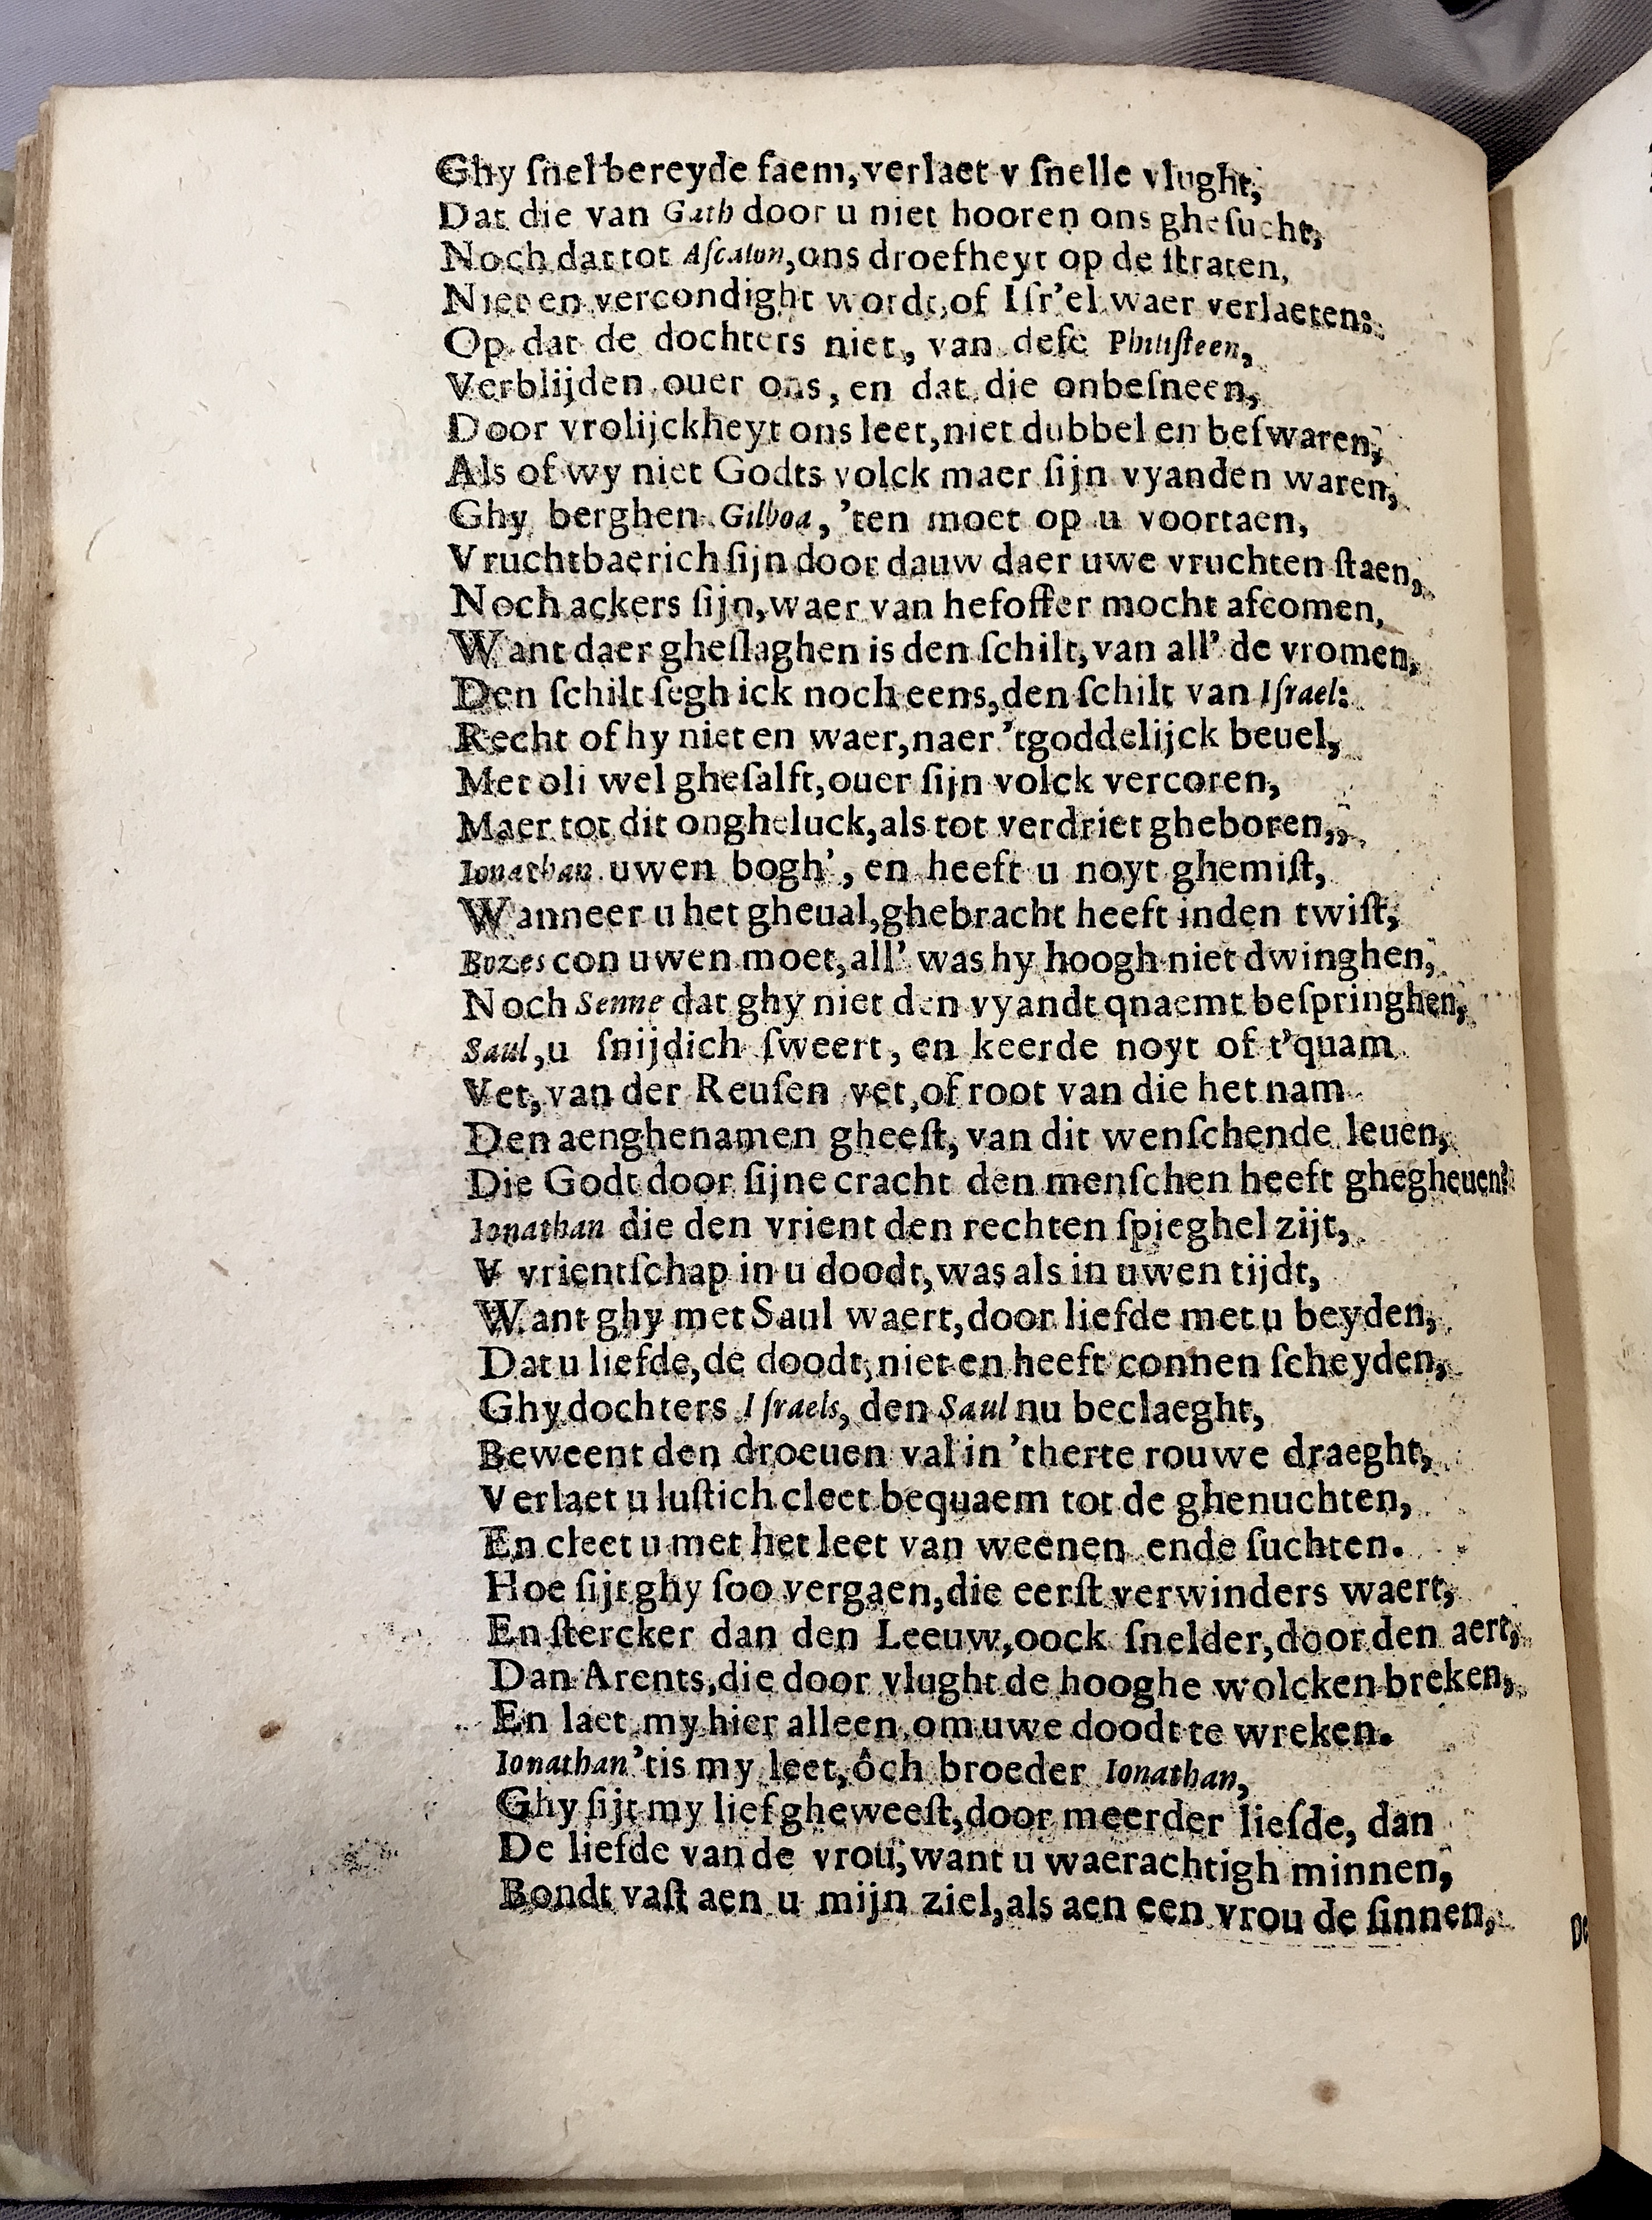 Ghy ſnel bereyde faem, verlaet v ſnelle vlught,
Dat die van Gath door u niet hooren ons gheſucht,
Noch dat tot Aſcalon, ons droefheyt op de ſtraten,
Niet en vercondight wordt, of Iſr'el waer verlaeten:
Op dat de dochters niet, van deſe Philiſteen,
Verblijden ouer ons, en dat die onbeſneen,
Door vrolijckheyt ons leet, niet dubbel en beſwaren,
Als of wy niet Godts volck maer ſijn vyanden waren,
Ghy berghen Gilboa, 'ten moet op u voortaen,
Vruchtbaerich ſijn door dauw daer uwe vruchten ſtaen,
Noch ackers ſijn, waer van hefoffer mocht afcomen,
Want daer gheſlaghen is den ſchilt, van all' de vromen,
Den ſchilt ſegh ick noch eens, den ſchilt van Iſrael:
Recht of hy niet en waer, naer 'tgoddelijck beuel,
Met oli wel gheſalft, ouer ſijn volck vercoren,
Maer tot dit ongheluck, als tot verdriet gheboren,
Ionathan uwen bogh', en heeft u noyt ghemiſt,
Wanneer u het gheual, ghebracht heeft inden twiſt,
Bozes con uwen moet, all' was hy hoogh niet dwinghen,
Noch Senne dat ghy niet den vyandt qnaemt beſpringhen,
Saul, u ſnijdich ſweert, en keerde noyt of t'quam
Vet, van der Reuſen vet, of root van die het nam
Den aenghenamen gheeſt, van dit wenſchende leuen,
Die Godt door ſijne cracht den menſchen heeft ghegheuen:
Ionathan die den vrient den rechten ſpieghel zijt,
V vrientſchap in u doodt, was als in uwen tijdt,
Want ghy met Saul waert, door liefde met u beyden,
Dat u liefde, de doodt, niet en heeft connen ſcheyden,
Ghy dochters Iſraels, den Saul nu beclaeght,
Beweent den droeuen val in 'therte rouwe draeght,
Verlaet u luſtich cleet bequaem tot de ghenuchten,
En cleet u met het leet van weenen ende ſuchten.
Hoe ſijt ghy ſoo vergaen, die eerſt verwinders waert,
En ſtercker dan den Leeuw, oock ſnelder, door den aert,
Dan Arents, die door vlught de hooghe wolcken breken,
En laet my hier alleen, om uwe doodt te wreken.
Ionathan 'tis my leet, ôch broeder Ionathan,
Ghy ſijt my lief gheweeſt, door meerder lieſde, dan
De liefde van de vrou, want u waerachtigh minnen,
Bondt vaſt aen u mijn ziel, als aen een vrou de ſinnen,